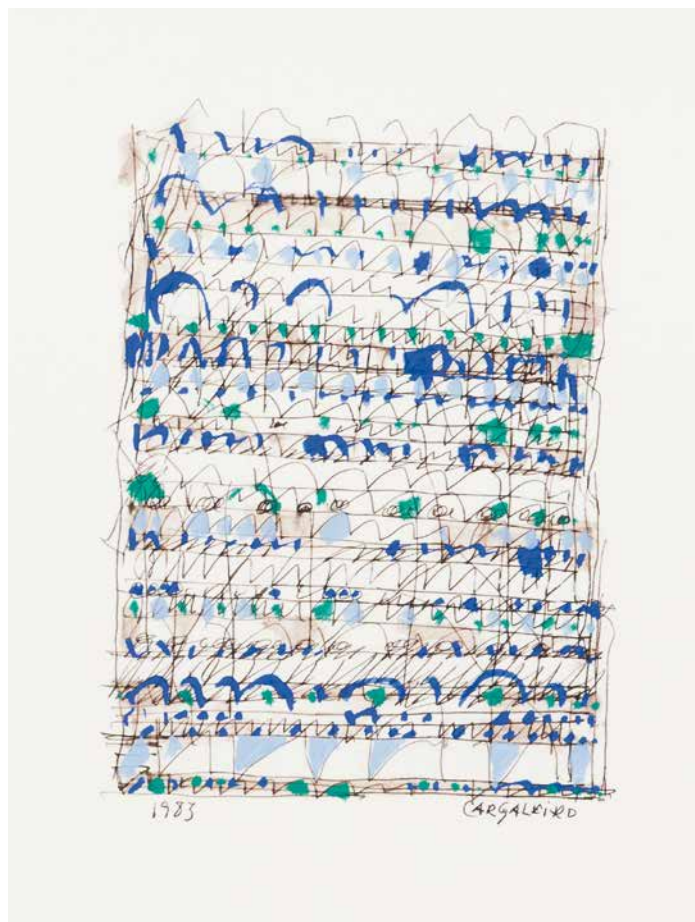 1983 CARGALEIRO